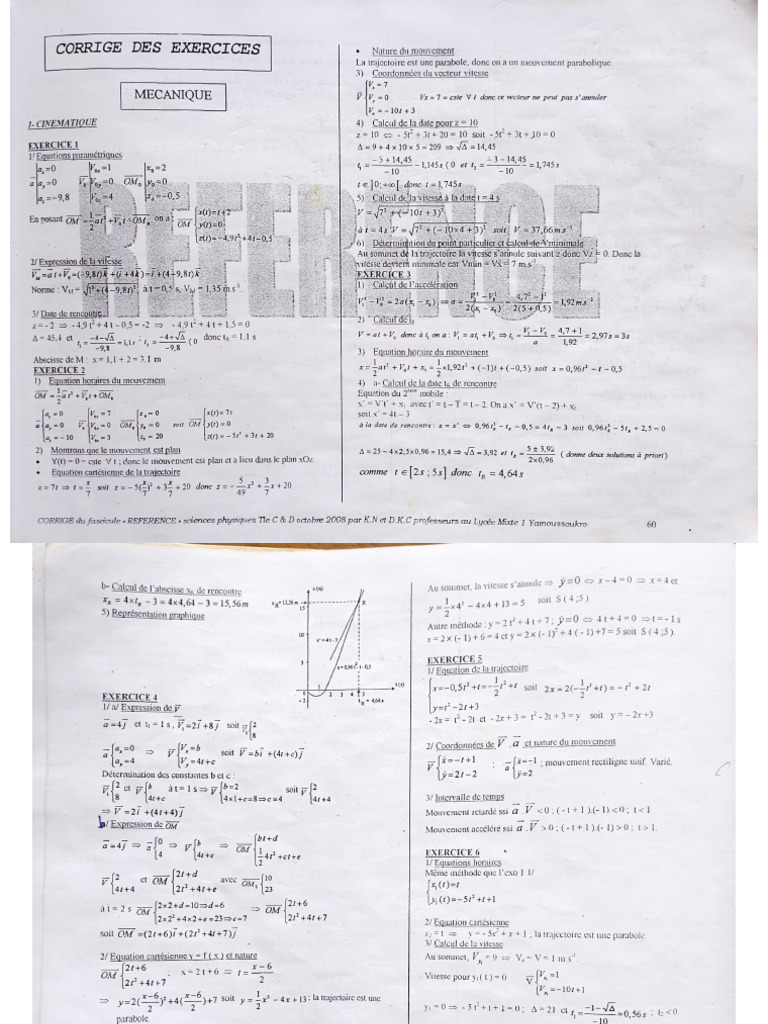 CORRIGE DES EXERCICES
MECANIQUE
I- CINEMATIQUE
EXERCICE 1
1/ Equations paramétriques
a⃗ { aₓ = 0 ; a_y = 0 ; a_z = -9,8   V⃗₀ { V₀ₓ = 1 ; V₀y = 0 ; V₀z = 4   OM⃗₀ { x₀ = 2 ; y₀ = 0 ; z₀ = -0,5
En posant OM⃗ = 1/2 a⃗t² + V⃗₀t + OM⃗₀ on a : OM⃗ { x(t) = t + 2 ; y(t) = 0 ; z(t) = -4,9t² + 4t - 0,5
2/ Expression de la vitesse
V⃗_M = a⃗t + V⃗₀ = (-9,8t)k⃗ + (i⃗ + 4k⃗) = i⃗ + (4 - 9,8t)k⃗
Norme : V_M = √(1² + (4 - 9,8t)²) à t = 0,5 s, V_M = 1,35 m.s⁻¹
3/ Date de rencontre
z = - 2 ⇒ - 4,9 t² + 4 t - 0,5 = -2 ⇒ - 4,9t² + 4 t + 1,5 = 0
Δ = 45,4 et t₁ = (-4 - √Δ)/(-9,8) = 1,1s ; t₂ = (-4 + √Δ)/(-9,8) ⟨ 0 donc t_R = 1,1 s
Abscisse de M : x = 1,1 + 2 = 3,1 m
EXERCICE 2
1) Equation horaires du mouvement
OM⃗ = 1/2 a⃗t² + V⃗₀t + OM⃗₀
a⃗ { aₓ = 0 ; a_y = 0 ; a_z = -10   V⃗₀ { V₀ₓ = 7 ; V₀y = 0 ; V₀z = 3   OM⃗₀ { x₀ = 0 ; y₀ = 0 ; z₀ = 20   soit OM⃗ { x(t) = 7t ; y(t) = 0 ; z(t) = -5t² + 3t + 20
2) Montrons que le mouvement est plan
• Y(t) = 0 = cste ∀ t ; donc le mouvement est plan et a lieu dans le plan xOz.
• Equation cartésienne de la trajectoire
x = 7t ⇒ t = x/7 soit z = -5(x/7)² + 3 x/7 + 20 donc z = - 5/49 x² + 3/7 x + 20
• Nature du mouvement
La trajectoire est une parabole, donc on a un mouvement parabolique
3) Coordonnées du vecteur vitesse
V⃗ { Vₓ = 7 ; V_y = 0 ; V_z = -10t + 3   Vx = 7 = cste ∀ t donc ce vecteur ne peut pas s'annuler
4) Calcul de la date pour z = 10
z = 10 ⇔ - 5t² + 3t + 20 = 10 soit - 5t² + 3t + 10 = 0
Δ = 9 + 4 × 10 × 5 = 209 ⇒ √Δ = 14,45
t₁ = (-3 + 14,45)/(-10) = -1,145 s ⟨ 0 et t₂ = (-3 - 14,45)/(-10) = 1,745 s
t ∈ ]0; +∞[, donc t = 1,745s
5) Calcul de la vitesse à la date t = 4 s
V = √(7² + (-10t + 3)²)
à t = 4s V = √(7² + (-10×4 + 3)²) soit V = 37,66 m s⁻¹
6) Détermination du point particulier et calcul de Vminimale
Au sommet de la trajectoire la vitesse s'annule suivant z donc Vz = 0. Donc la
vitesse devient minimale car Vmin = Vx = 7 m.s⁻¹
EXERCICE 3
1) Calcul de l'accélération
V₁² - V₀² = 2a(x₁ - x₀) ⇒ a = (V₁² - V₀²)/(2(x₁ - x₀)) = (4,7² - 1²)/(2(5 + 0,5)) = 1,92 ms⁻²
2) Calcul de t₁
V = at + V₀ donc à t₁ on a : V₁ = at₁ + V₀ ⇒ t₁ = (V₁ - V₀)/a = (4,7 + 1)/1,92 = 2,97s = 3s
3) Equation horaire du mouvement
x = 1/2 at² + V₀t + x₀ = 1/2 × 1,92t² + (-1)t + (-0,5) soit x = 0,96t² - t - 0,5
4) a- Calcul de la date t_R de rencontre
Equation du 2ᵉᵐᵉ mobile :
x' = V't' + x₁ avec t' = t - T = t - 2. On a x' = V'(t - 2) + x₁
soit x' = 4t - 3
à la date de rencontre : x = x' ⇔ 0,96t_R² - t_R - 0,5 = 4t_R - 3 soit 0,96t_R² - 5t_R + 2,5 = 0
Δ = 25 - 4×2,5×0,96 = 15,4 ⇒ √Δ = 3,92 et t_R = (5 ± 3,92)/(2×0,96) ( donne deux solutions à priori)
comme t ∈ [2s ; 5s] donc t_R = 4,64s
CORRIGE du fascicule « REFERENCE » sciences physiques Tle C & D octobre 2008 par K.N et D.K.C professeurs au Lycée Mixte 1 Yamoussoukro 60
REFERENCE
b- Calcul de l'abscisse x_R de rencontre
x_R = 4×t_R - 3 = 4×4,64 - 3 = 15,56m
5) Représentation graphique
x (m)
x_R = 15,56 m
15
R
10
x' = 4t - 3
5
x = 0,96t² - t - 0,5
1 2 3 4 5 t (s)
- 2
t_R = 4,64s
EXERCICE 4
1/ a/ Expression de V⃗
a⃗ = 4j⃗ et t₁ = 1 s , V⃗₁ = 2i⃗ + 8j⃗ soit V⃗₁ { 2 ; 8
a⃗ { aₓ = 0 ; a_y = 4 ⇒ V⃗ { Vₓ = b ; V_y = 4t + c soit V⃗ = bi⃗ + (4t + c)j⃗
Détermination des constantes b et c :
V⃗₁ { 2 ; 8 et V⃗ { b ; 4t + c à t = 1 s ⇒ { b = 2 ; 4×1 + c = 8 ⇒ c = 4 soit V⃗ { 2 ; 4t + 4
⇒ V⃗ = 2i⃗ + (4t + 4)j⃗
b/ Expression de OM⃗
a⃗ = 4j⃗ ⇒ a⃗ { 0 ; 4 ⇒ V⃗ { b ; 4t + c ⇒ OM⃗ { bt + d ; 1/2 4t² + ct + e
V⃗ { 2 ; 4t + 4 et OM⃗ { 2t + d ; 2t² + 4t + e avec OM⃗₂ { 10 ; 23
à t = 2 s OM⃗ { 2×2 + d = 10 ⇒ d = 6 ; 2×2² + 4×2 + e = 23 ⇒ e = 7 ⇒ OM⃗ { 2t + 6 ; 2t² + 4t + 7
soit OM⃗ = (2t + 6)i⃗ + (2t² + 4t + 7)j⃗
2/ Equation cartésienne y = f ( x ) et nature
OM⃗ { 2t + 6 ; 2t² + 4t + 7 ; x = 2 t + 6 ⇒ t = (x - 6)/2
⇒ y = 2((x - 6)/2)² + 4((x - 6)/2) + 7 soit y = 1/2 x² - 4x + 13 ; la trajectoire est une
parabole.
Au sommet, la vitesse s'annule ⇒ ẏ = 0 ⇔ x - 4 = 0 ⇒ x = 4 et
y = 1/2 × 4² - 4×4 + 13 = 5 soit S ( 4 ; 5 )
Autre méthode : y = 2 t² + 4 t + 7 ; ẏ = 0 ⇔ 4 t + 4 = 0 ⇒ t = - 1 s
x = 2 × (- 1) + 6 = 4 et y = 2 × (- 1)² + 4 ( - 1) + 7 = 5 soit S ( 4 ; 5 ).
EXERCICE 5
1/ Equation de la trajectoire
{ x = -0,5t² + t = - 1/2 t² + t ; y = t² - 2t + 3 soit 2x = 2(- 1/2 t² + t) = - t² + 2t
- 2x = t² - 2t et - 2x + 3 = t² - 2t + 3 = y soit y = - 2x + 3
2/ Coordonnées de V⃗ , a⃗ et nature du mouvement
V⃗ { ẋ = -t + 1 ; ẏ = 2t - 2 ; a⃗ { ẍ = -1 ; ÿ = 2 ; mouvement rectiligne unif. Varié.
3/ Intervalle de temps
Mouvement retardé ssi a⃗.V⃗ < 0 ; ( - t + 1 ).(- 1) < 0 ; t < 1
Mouvement accéléré ssi a⃗.V⃗ > 0 ; ( - t + 1).(- 1) > 0 ; t > 1.
EXERCICE 6
1/ Equations horaires
Même méthode que l'exo 1 1/
{ x₁(t) = t ; y₁(t) = -5t² + t + 1
2/ Equation cartésienne
x₁ = t ⇒ y = - 5x² + x + 1 ; la trajectoire est une parabole.
3/ Calcul de la vitesse
Au sommet, = 0 ⇒ Vₛ = V = 1 m.s⁻¹.
Vitesse pour y₁( t ) = 0 V⃗ = 1 ; = -10t + 1
y₁ = 0 ⇒ - 5 t² + t + 1 = 0 ; Δ = 21 et t₁ = (-1 - √Δ)/(-10) = 0,56s ; t₂ < 0.